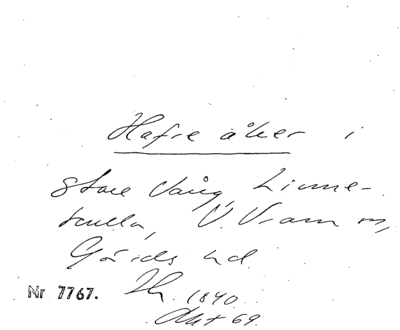 Hafre åker i
Store Vång, Linne-
kulla, V. Vram sn,
Gärds hd.
Nr 7767. 1840.
Akt 69.